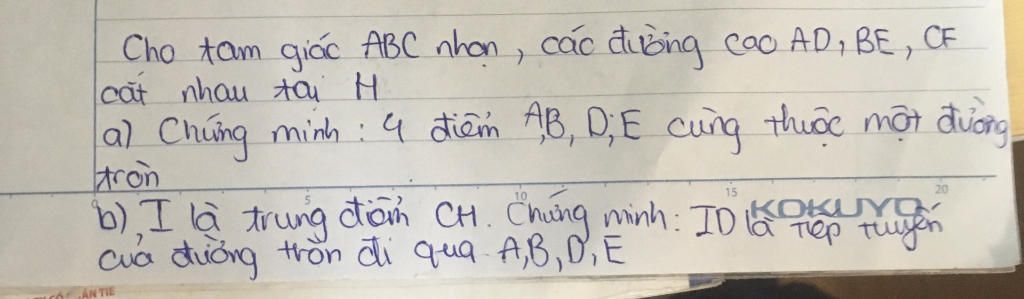 Cho tam giác ABC nhọn, các đường cao AD, BE, CF
cắt nhau tại H
a) Chứng minh: 4 điểm A,B, D,E cùng thuộc một đường
tròn
5 10 15 20
KOKUYO
b), I là trung điểm CH. Chứng minh: ID là tiếp tuyến
của đường tròn đi qua A,B,D,E